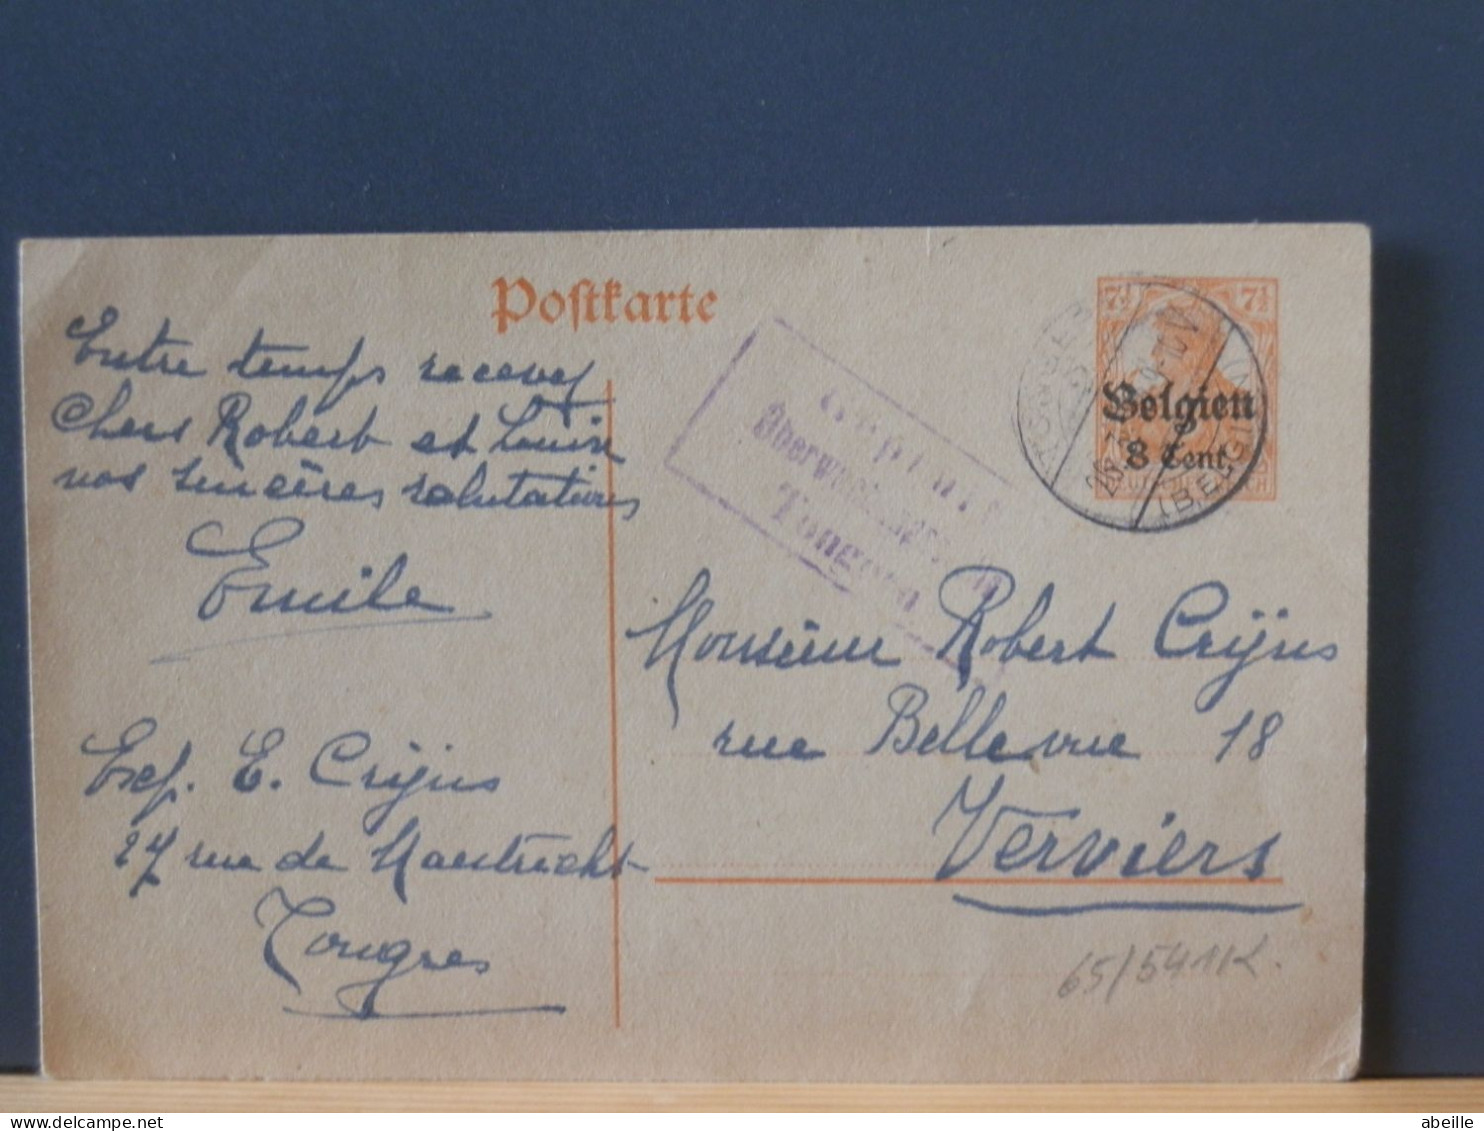 Postkarte
Entre temps recevez
Chers Robert et Louise
nos sincères salutations
Emile
Exp. E. Crijns
27 rue de Maestricht
Tongres
Geprüft
Überwachungs
Tongern
7½ 7½
Belgien
8 Cent.
(BELGIEN)
Monsieur Robert Crijns
rue Bellevue 18
Verviers
65/5411K.
abeille